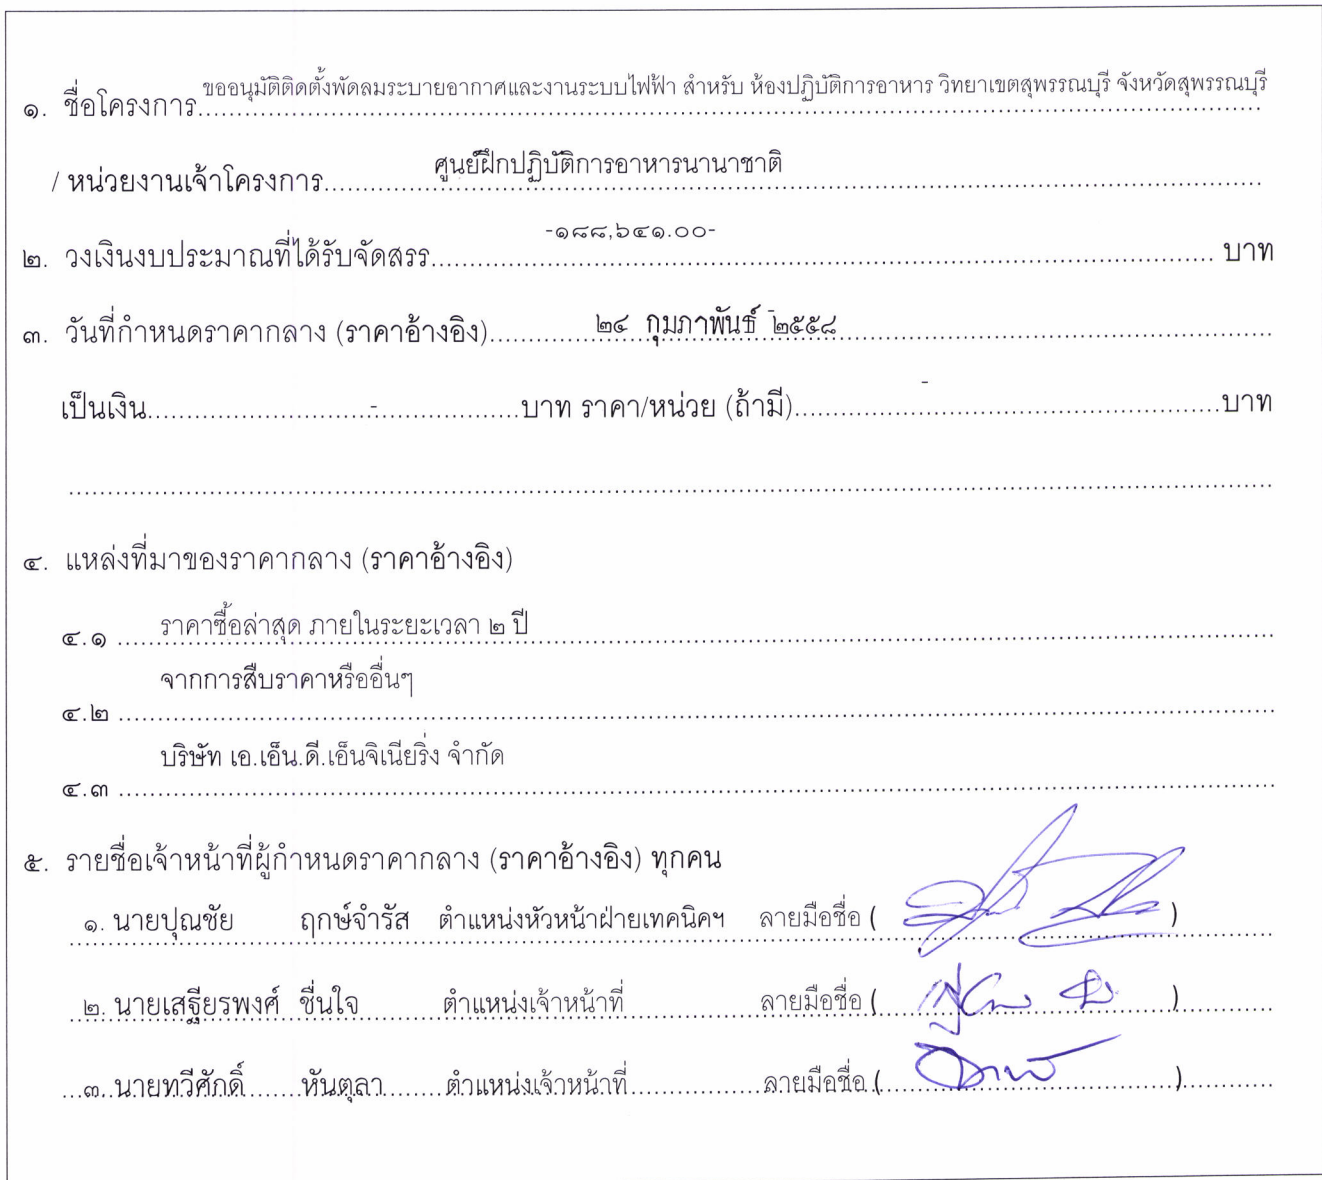 ๑. ชื่อโครงการ ขออนุมัติติดตั้งพัดลมระบายอากาศและงานระบบไฟฟ้า สำหรับ ห้องปฏิบัติการอาหาร วิทยาเขตสุพรรณบุรี จังหวัดสุพรรณบุรี
/ หน่วยงานเจ้าโครงการ ศูนย์ฝึกปฏิบัติการอาหารนานาชาติ
๒. วงเงินงบประมาณที่ได้รับจัดสรร -๑๘๘,๖๔๑.๐๐- บาท
๓. วันที่กำหนดราคากลาง (ราคาอ้างอิง) ๒๔ กุมภาพันธ์ ๒๕๕๘
เป็นเงิน - บาท ราคา/หน่วย (ถ้ามี) - บาท
๔. แหล่งที่มาของราคากลาง (ราคาอ้างอิง)
๔.๑ ราคาซื้อล่าสุด ภายในระยะเวลา ๒ ปี
๔.๒ จากการสืบราคาหรืออื่นๆ
๔.๓ บริษัท เอ.เอ็น.ดี.เอ็นจิเนียริ่ง จำกัด
๕. รายชื่อเจ้าหน้าที่ผู้กำหนดราคากลาง (ราคาอ้างอิง) ทุกคน
๑. นายปุณชัย ฤกษ์จำรัส ตำแหน่งหัวหน้าฝ่ายเทคนิคฯ ลายมือชื่อ ( )
๒. นายเสฐียรพงศ์ ชื่นใจ ตำแหน่งเจ้าหน้าที่ ลายมือชื่อ ( )
๓. นายทวีศักดิ์ หันตุลา ตำแหน่งเจ้าหน้าที่ ลายมือชื่อ ( )